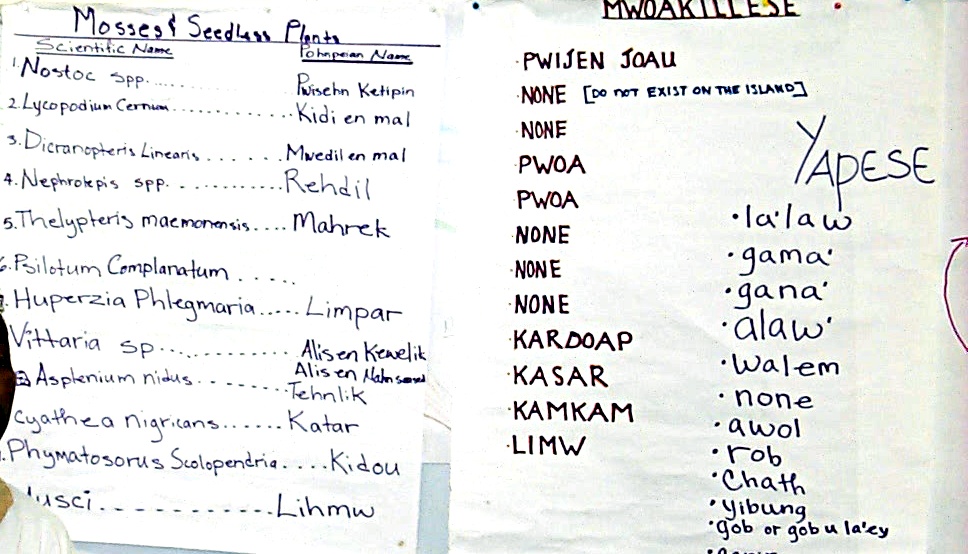 Mosses & Seedless Plants
Scientific Name Pohnpeian Name
1. Nostoc spp........ Pwisehn Ketipin
2. Lycopodium Cernum............. Kidi en mal
3. Dicranopteris Linearis ...... Mwedil en mal
4. Nephrolepis spp. ........... Rehdil
5. Thelypteris maemonensis.... Mahrek
6. Psilotum Complanatum .....
Huperzia Phlegmaria..... Limpar
Vittaria sp.............. Alis en Kewelik
Alis en
Asplenium nidus......... Tehnlik
Cyathea nigricans...... Katar
Phymatosorus Scolopendria.... Kidou
Musci............ Lihmw
MWOAKILLESE
·PWIJEN JOAU
·NONE [DO NOT EXIST ON THE ISLAND]
·NONE
·PWOA
·PWOA
·NONE
·NONE
·NONE
·KARDOAP
·KASAR
·KAMKAM
·LIMW
YAPESE
·la'law
·gama'
·gana'
·alaw'
·walem
·none
·awol
·rob
·Chath
·yibung
·gob or gob u la'ey